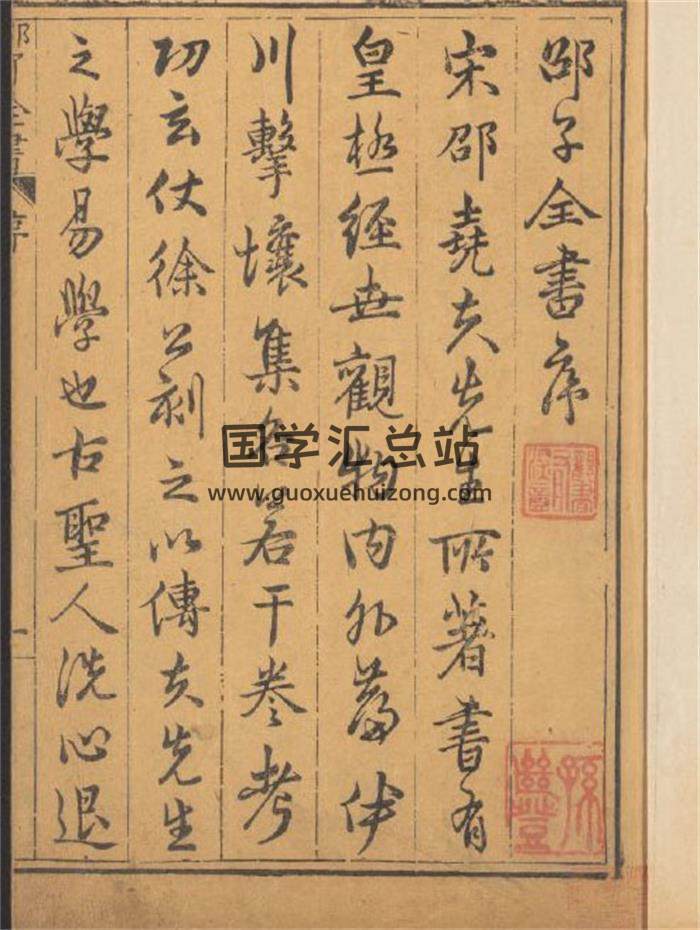 邵子全書序
宋邵堯夫先生所著書有
皇極經世觀物內外篇伊
川擊壤集各若干卷考
功玄仗徐公刻之以傳夫先生
之學易學也古聖人洗心退
邵子全書 序
国学汇总站
www.guoxuehuizong.com